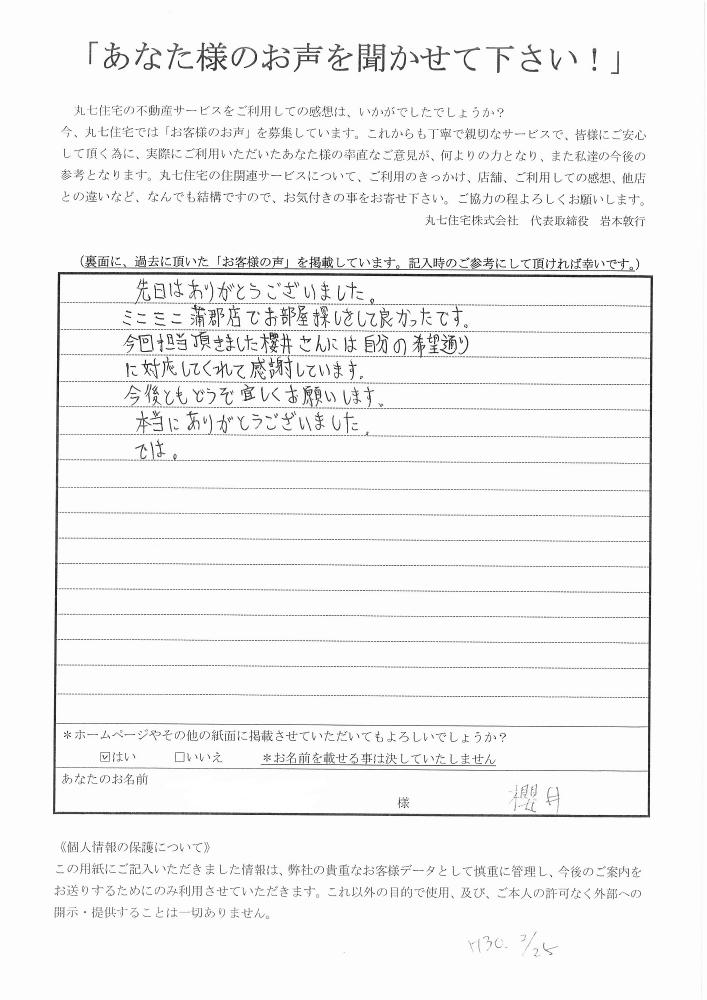 「あなた様のお声を聞かせて下さい！」
丸七住宅の不動産サービスをご利用しての感想は、いかがでしたでしょうか？
今、丸七住宅では「お客様のお声」を募集しています。これからも丁寧で親切なサービスで、皆様にご安心
して頂く為に、実際にご利用いただいたあなた様の率直なご意見が、何よりの力となり、また私達の今後の
参考となります。丸七住宅の住関連サービスについて、ご利用のきっかけ、店舗、ご利用しての感想、他店
との違いなど、なんでも結構ですので、お気付きの事をお寄せ下さい。ご協力の程よろしくお願いします。
丸七住宅株式会社　代表取締役　岩本敦行
（裏面に、過去に頂いた「お客様の声」を掲載しています。記入時のご参考にして頂ければ幸いです。）
先日はありがとうございました。
ミニミニ蒲郡店でお部屋探しをして良かったです。
今回担当頂きました櫻井さんには自分の希望通り
に対応してくれて感謝しています。
今後ともどうぞ宜しくお願いします。
本当にありがとうございました。
では。
＊ホームページやその他の紙面に掲載させていただいてもよろしいでしょうか？
☑はい　□いいえ　＊お名前を載せる事は決していたしません
あなたのお名前
様　櫻井
《個人情報の保護について》
この用紙にご記入いただきました情報は、弊社の貴重なお客様データとして慎重に管理し、今後のご案内を
お送りするためにのみ利用させていただきます。これ以外の目的で使用、及び、ご本人の許可なく外部への
開示・提供することは一切ありません。
H30. 2/25